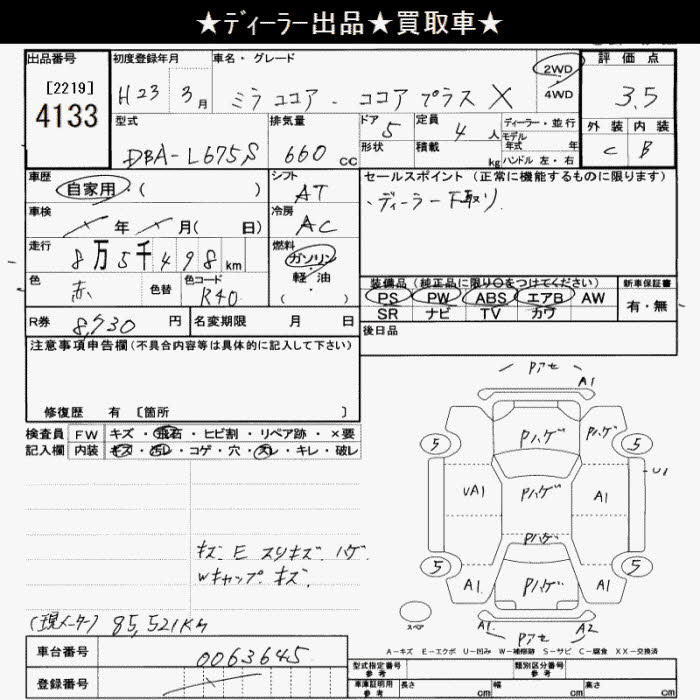 ★ディーラー出品★買取車★
出品番号
[2219]
4133
初度登録年月
H23 3月
車名・グレード
ミラココア - ココアプラスX
2WD
4WD
評価点
3.5
型式
DBA-L675S
排気量
660 cc
ドア 5
形状
定員 4人
積載 kg
ディーラー・並行
モデル
年式 年
ハンドル 左・右
外装 内装
C B
車歴
自家用・( )
シフト
AT
セールスポイント (正常に機能するものに限ります)
、ディーラー下取り
車検
年 月( 日)
冷房
AC
走行
8万5千498km
燃料
ガソリン
軽・油
・( )
色
赤
色替
色コード
R40
装備品(純正品に限り○をつけてください)
PS PW ABS エアB AW
SR ナビ TV カワ
新車保証書
有・無
R券 8,730 円
名変期限 月 日
後日品
注意事項申告欄(不具合内容等は具体的に記入して下さい)
修復歴 有 〔箇所 〕
検査員 FW キズ・飛石・ヒビ割・リペア跡・×要
記入欄 内装 キズ・汚レ・コゲ・穴・スレ・キレ・破レ
Pアセ
A1
5 Pハゲ Pハゲ 5
U1
UA1 Pハゲ A1
Pハゲ
5 5
A1 Pハゲ A1
スペア
A1 Pアセ A2
キズ E スリキズ ハゲ
Wキャップ キズ
(現メーター) 85,521KM
A-キズ E-エクボ U-凹み W-補修跡 S-サビ C-腐食 XX-交換済
車台番号 0063645
登録番号
型式指定番号
参考
類別区分番号
参考
車庫証明用
参考
長さ cm 幅 cm 高さ cm